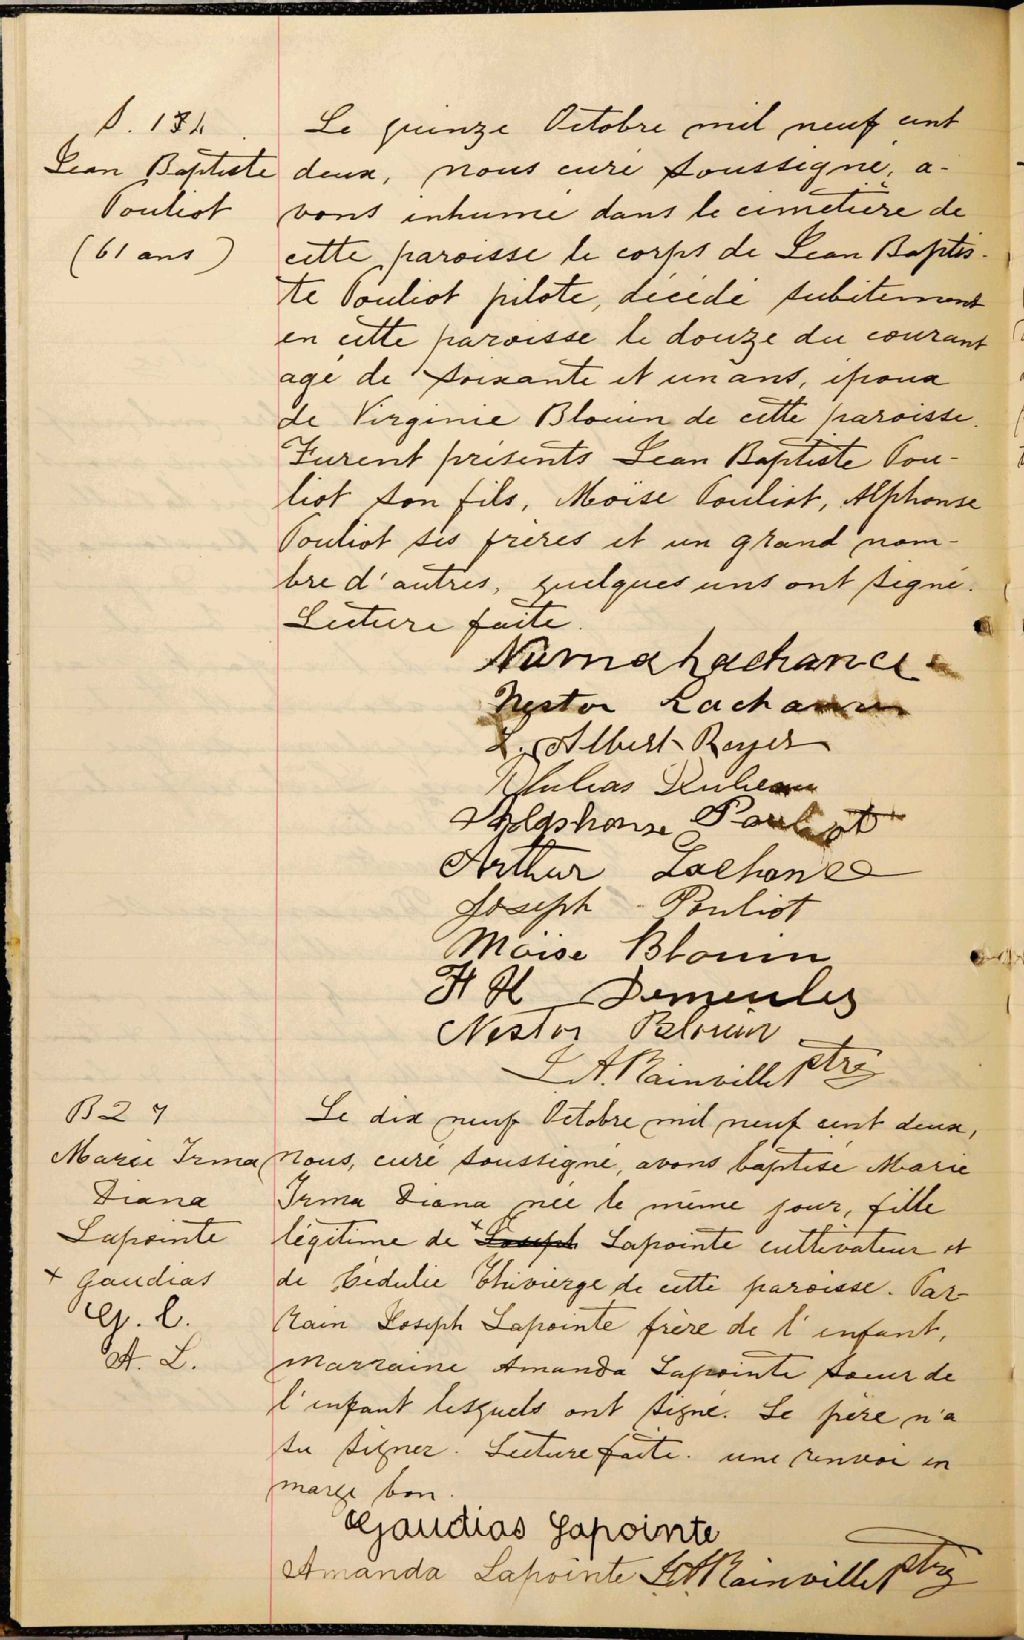 S. 134
Jean Baptiste
Pouliot
(61 ans)
Le quinze Octobre mil neuf cent
deux, nous curé soussigné, a-
vons inhumé dans le cimetière de
cette paroisse le corps de Jean Baptis-
te Pouliot pilote, décédé subitement
en cette paroisse le douze du courant
agé de soixante et un ans, époux
de Virginie Blouin de cette paroisse.
Furent présents Jean Baptiste Pou-
liot son fils, Moïse Pouliot, Alphonse
Pouliot ses frères et un grand nom-
bre d'autres, quelques uns ont signé.
Lecture faite.
Numa Lachance
Nestor Lachance
L. Albert Royer
Alphonse Pouliot
Arthur Lachance
Joseph Pouliot
Moïse Blouin
H H Demeules
Nestor Blouin
L. A. Rainville Ptre
B 27
Marie Irma
Diana
Lapointe
+ Gaudias
G. L.
A. L.
Le dix neuf Octobre mil neuf cent deux,
nous, curé soussigné, avons baptisé Marie
Irma Diana née le même jour, fille
légitime de + Joseph Lapointe cultivateur et
de Cédulie Thivierge de cette paroisse. Par-
rain Joseph Lapointe frère de l'enfant,
marraine Amanda Lapointe soeur de
l'enfant lesquels ont signé. Le père n'a
su signer. Lecture faite. une renvoi en
marge bon.
Gaudias Lapointe
Amanda Lapointe L. A. Rainville Ptre